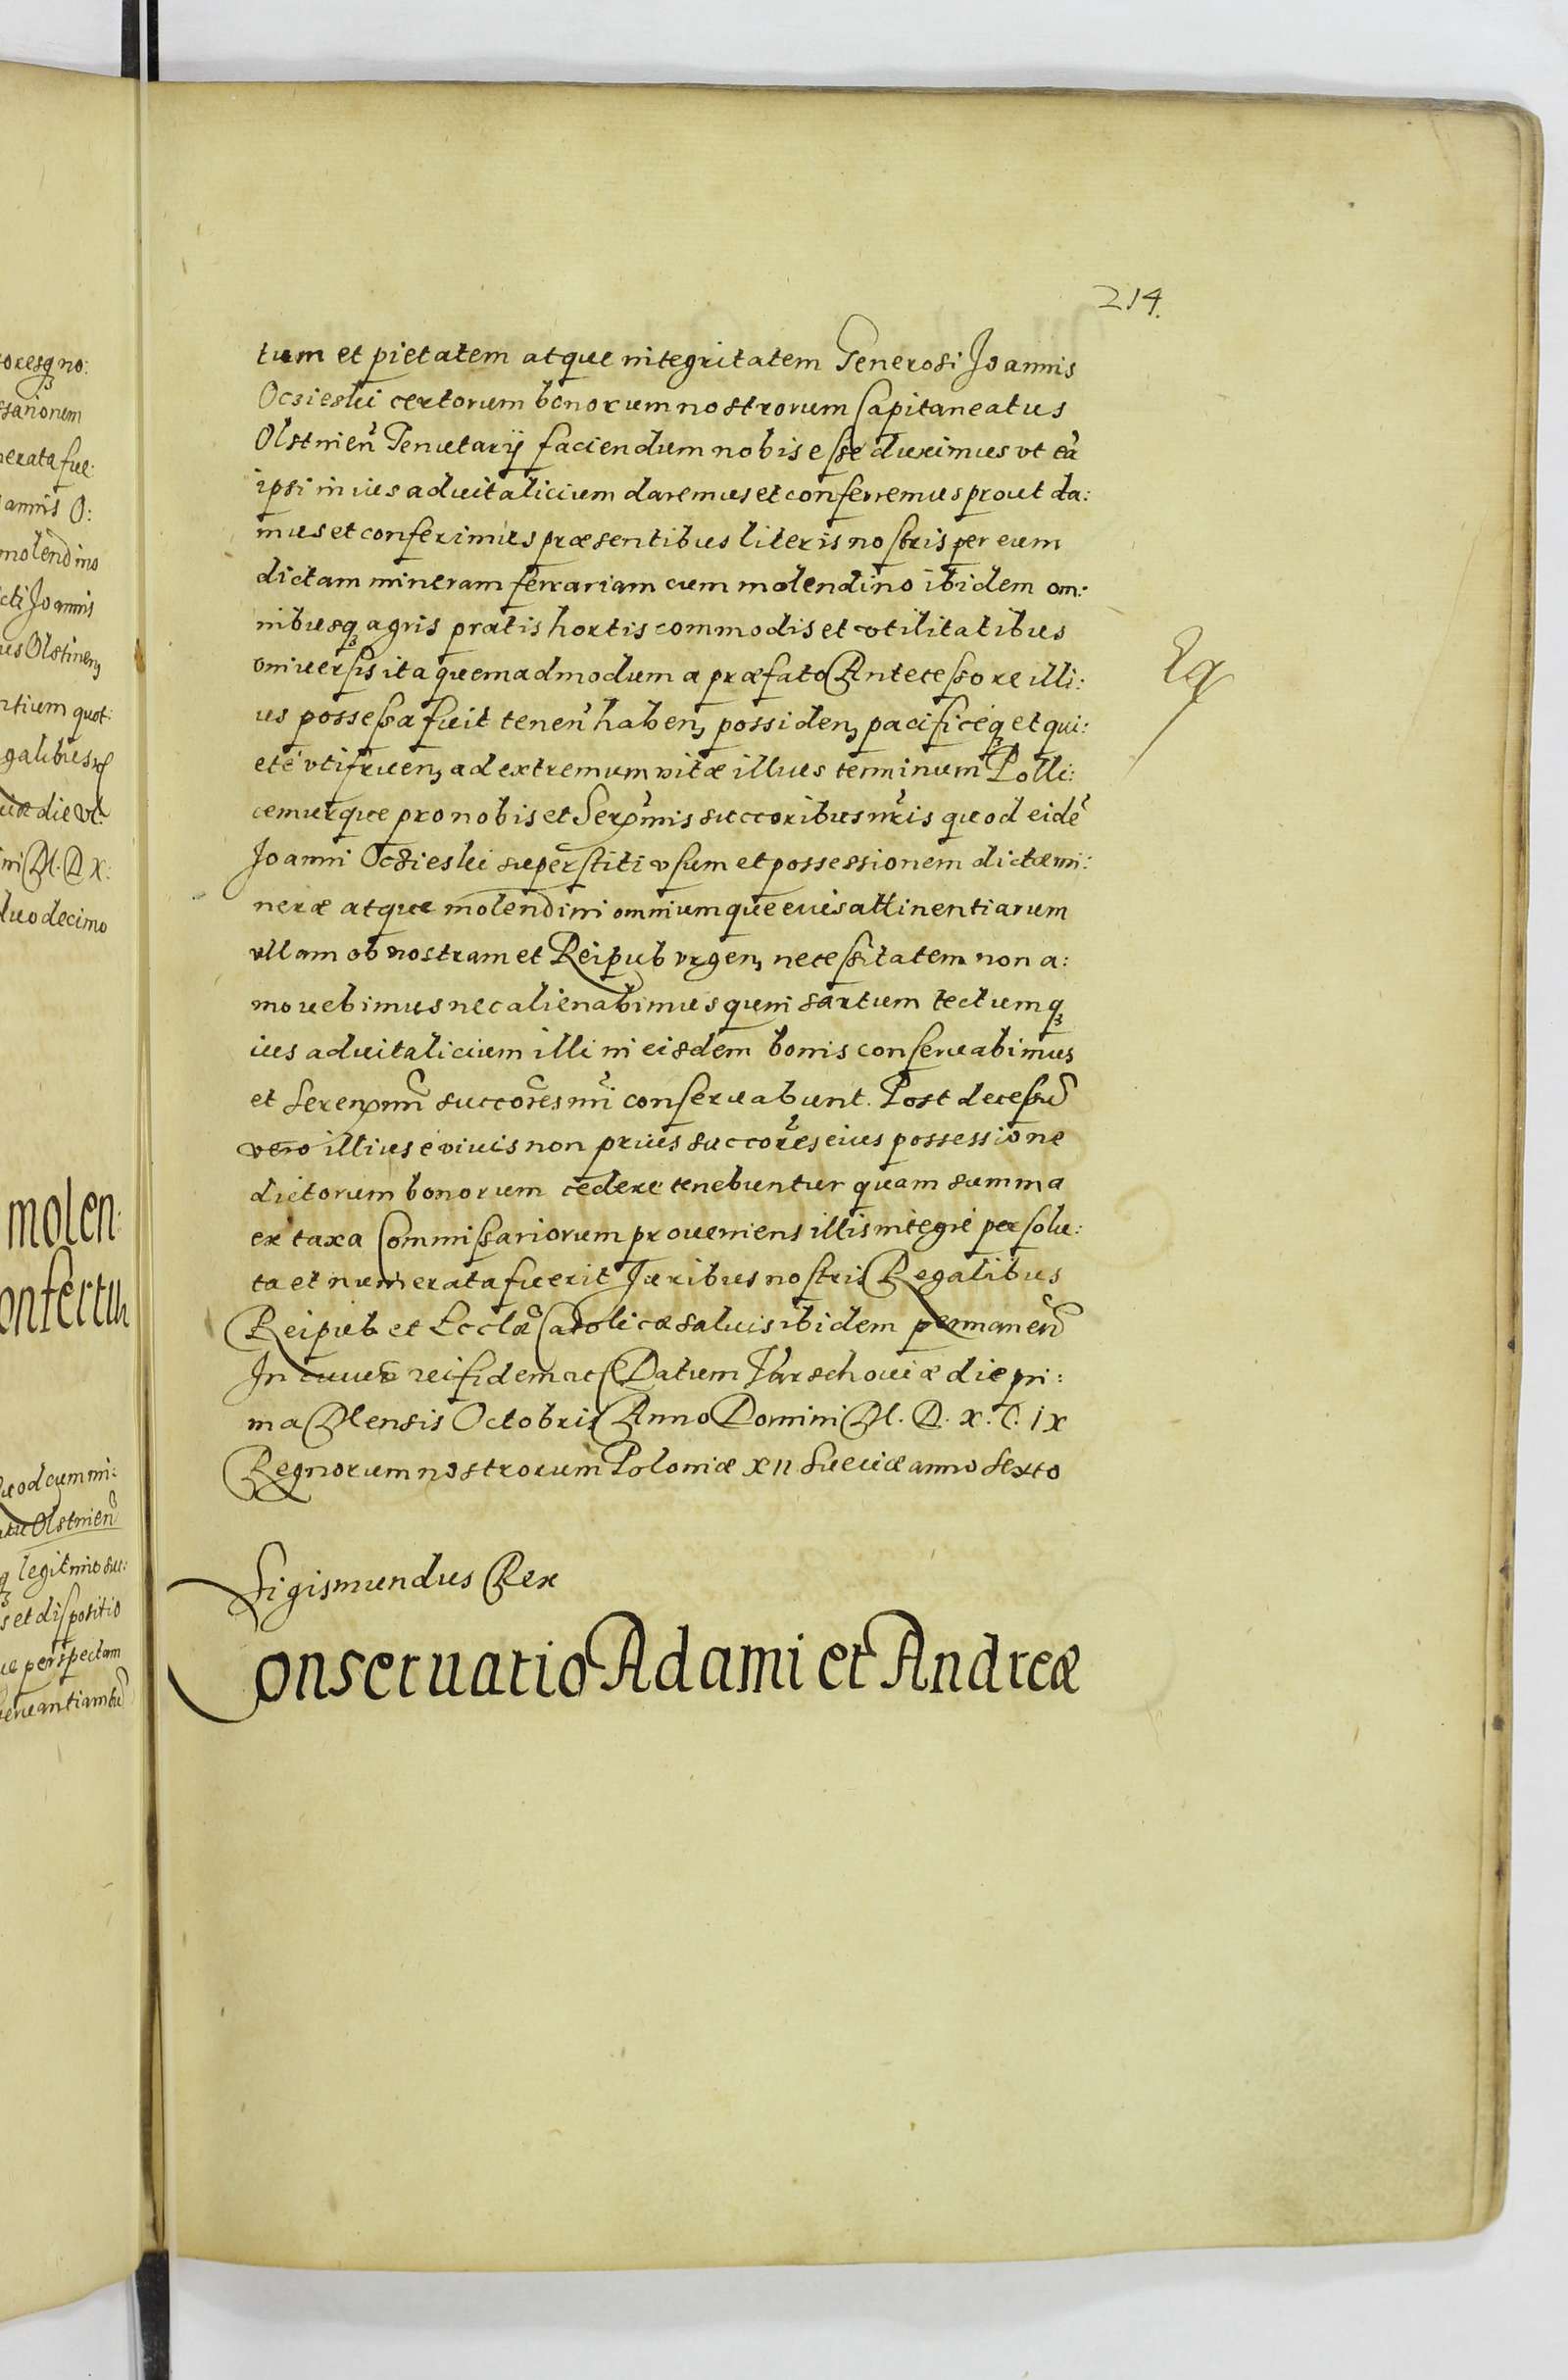 214.
tum et pietatem atque integritatem Generosi Joannis
Ocsieski certorum bonorum nostrorum Capitaneatus
Olstinen̄ Tenutarij faciendum nobis esse duximus vt eā
ipsi in ius aduitalicium daremus et conferremus prout da:
mus et conferimus præsentibus literis nostris per eum
dictam mineram ferrariam cum molendino ibidem om:
nibusqꝫ agris pratis hortis commodis et vtilitatibus
vniuersis ita quemadmodum a præfato Antecessore illi:
us possessa fuit tenen̄ habenꝫ possidenꝫ pacificéqꝫ et qui:
eté vtifruenꝫ ad extremum vitæ illius terminum Polli:
cemurque pro nobis et Serx̄mis succoribus nr̄is quod eidē
Joanni Ocsieski superstiti vsum et possessionem dictæ mi:
neræ atque molendini omniumque euis attinentiarum
vllam ob nostram et Reipub vrgenꝫ necessitatem non a:
mouebimus nec alienabimus quin sartum tectumqꝫ
ius aduitalicium illi in eisdem bonis conseruabimus
et Serenx̄mi succōres nr̄i conseruabunt. Post decessū
vero illius é viuis non prius succōres eius possessione
dictorum bonorum cedere tenebuntur quam summa
ex taxa Commissariorum proueniens illis integré persolu:
ta et numerata fuerit Juribus nostris Regalibus
Reipub et Ecclǣ Catolicæ saluis ibidem permanen̄
In cuius rei fidem etc Datum Varschouiæ die pri:
ma Mensis Octobris Anno Domini M. D. X. C. IX
Regnorum nostrorum Poloniæ XII Sueciæ anno sexto
Sigismundus Rex
Conseruatio Adami et Andreæ
no:
amnis O:
molendino
Joannis
Olstinenꝫ
quot:
die vt
M. D X:
duodecimo
molen:
Olstinen̄
legitimo suc:
et dispositio
perspectam